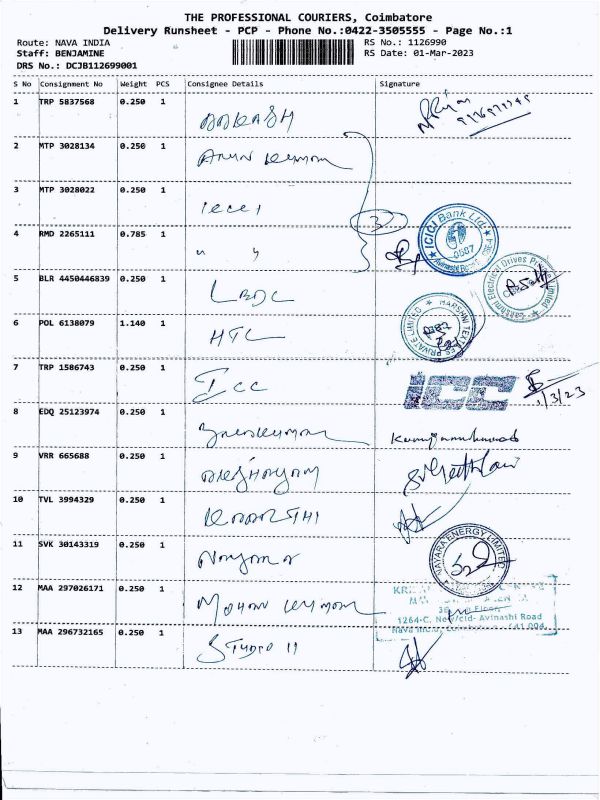 THE PROFESSIONAL COURIERS, Coimbatore
Delivery Runsheet - PCP - Phone No.:0422-3505555 - Page No.:1
Route: NAVA INDIA RS No.: 1126990
Staff: BENJAMINE RS Date: 01-Mar-2023
DRS No.: DCJB112699001
S No Consignment No Weight PCS Consignee Details Signature
1 TRP 5837568 0.250 1
2 MTP 3028134 0.250 1 Arun Kumar
3 MTP 3028022 0.250 1
3
4 RMD 2265111 0.785 1 " "
ICICI Bank Ltd.
5 BLR 4450446839 0.250 1
Lakshmi Electrical Drives
6 POL 6138079 1.140 1 HTL
HARSHNI TEXTILES PRIVATE LIMITED
7 TRP 1586743 0.250 1 ICC
ICC
1/3/23
8 EDQ 25123974 0.250 1
9 VRR 665688 0.250 1
10 TVL 3994329 0.250 1
11 SVK 30143319 0.250 1
NAYARA ENERGY LIMITED
12 MAA 297026171 0.250 1 Mohan Kumar
Floor
1264-C, Avinashi Road
13 MAA 296732165 0.250 1 STUDIO 11